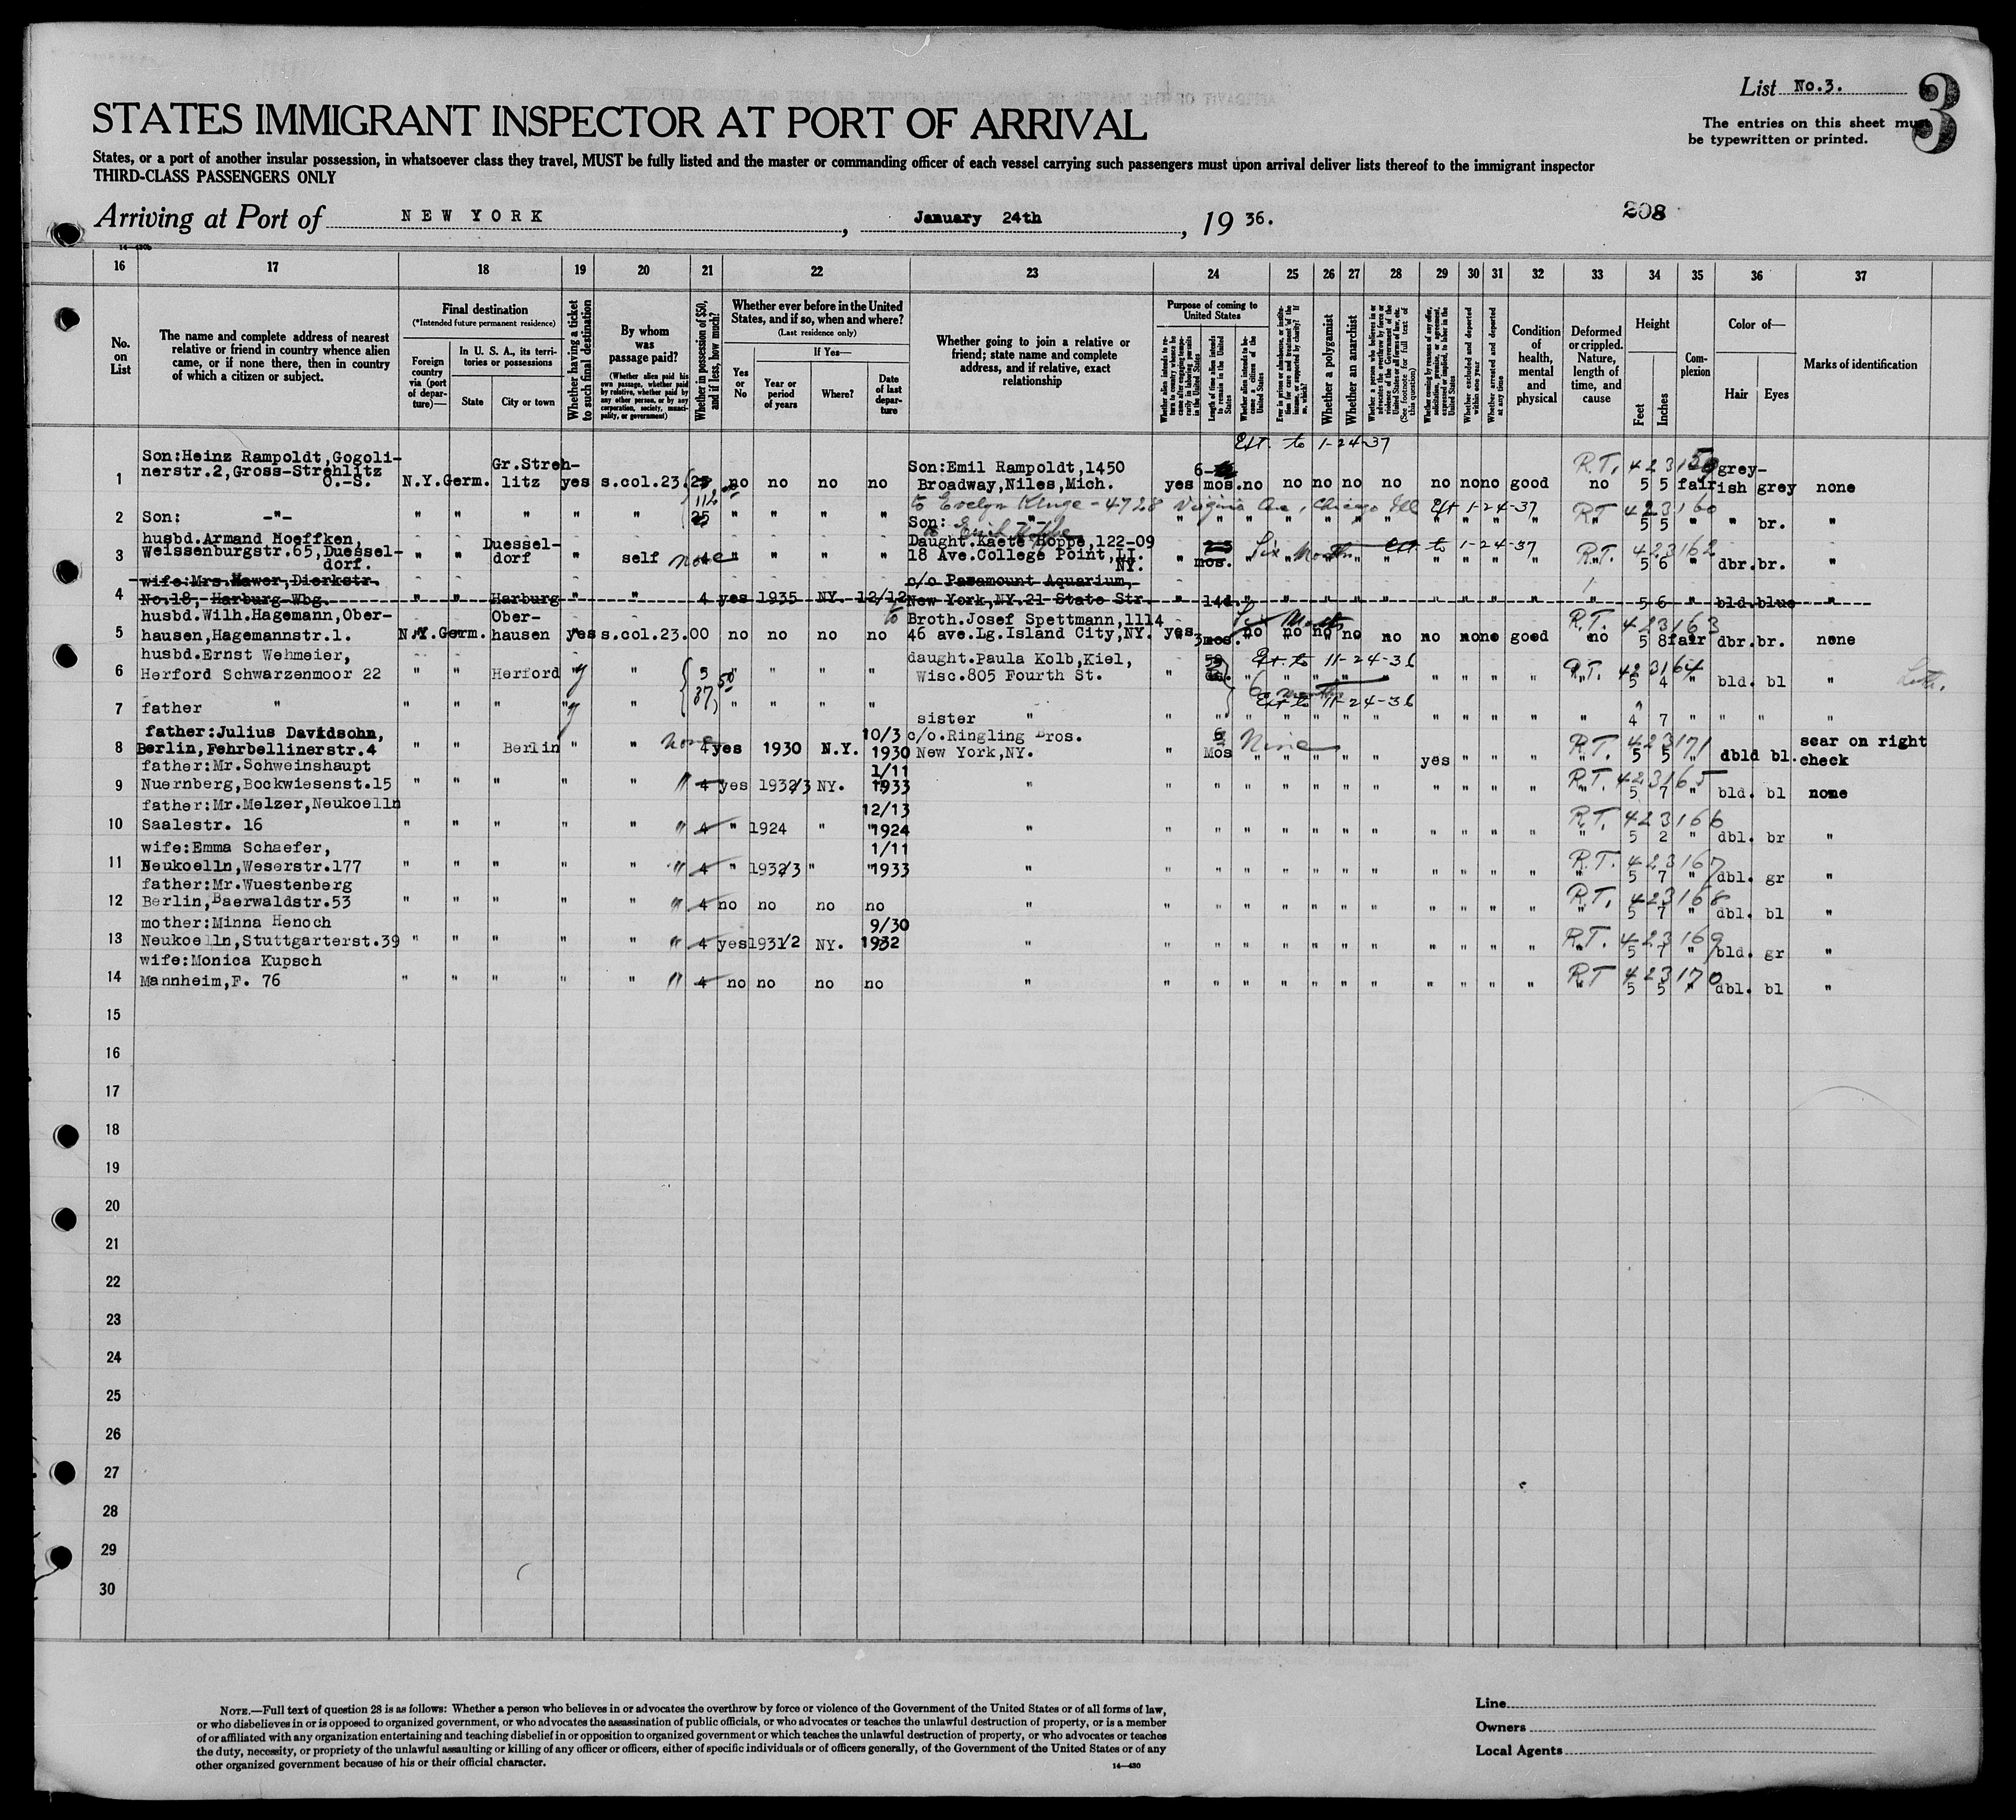 List No.3.
3
The entries on this sheet must
be typewritten or printed.
STATES IMMIGRANT INSPECTOR AT PORT OF ARRIVAL
States, or a port of another insular possession, in whatsoever class they travel, MUST be fully listed and the master or commanding officer of each vessel carrying such passengers must upon arrival deliver lists thereof to the immigrant inspector
THIRD-CLASS PASSENGERS ONLY
Arriving at Port of NEW YORK, January 24th, 19 36.
208
14-430b
16 17 18 19 20 21 22 23 24 25 26 27 28 29 30 31 32 33 34 35 36 37
No. on List
The name and complete address of nearest relative or friend in country whence alien came, or if none there, then in country of which a citizen or subject.
Final destination
(*Intended future permanent residence)
Foreign country via (port of departure)—
In U. S. A., its territories or possessions
State
City or town
Whether having a ticket to such final destination
By whom was passage paid?
(Whether alien paid his own passage, whether paid by relative, whether paid by any other person, or by any corporation, society, municipality, or government)
Whether in possession of $50, and if less, how much?
Whether ever before in the United States, and if so, when and where?
(Last residence only)
Yes or No
If Yes—
Year or period of years
Where?
Date of last departure
Whether going to join a relative or friend; state name and complete address, and if relative, exact relationship
Purpose of coming to United States
Whether alien intends to return to country whence he came after engaging temporarily in laboring pursuits in the United States
Length of time alien intends to remain in the United States
Whether alien intends to become a citizen of the United States
Ever in prison or almshouse, or institution for care and treatment of the insane, or supported by charity? If so, which?
Whether a polygamist
Whether an anarchist
Whether a person who believes in or advocates the overthrow by force or violence of the Government of the United States or all forms of law, etc. (See footnote for full text of this question)
Whether coming by reason of any offer, solicitation, promise, or agreement, expressed or implied, to labor in the United States
Whether excluded and deported within one year
Whether arrested and deported at any time
Condition of health, mental and physical
Deformed or crippled. Nature, length of time, and cause
Height
Feet
Inches
Complexion
Color of—
Hair
Eyes
Marks of identification
Ext. to 1-24-37
Son:Heinz Rampoldt,Gogoli- Gr.Streh- Son:Emil Rampoldt,1450 6- R.T. 423159 grey-
1 nerstr.2,Gross-Strehlitz O.-S. N.Y. Germ. litz yes s.col.23. 25 no no no no Broadway,Niles,Mich. yes mos. no no no no no no no no good no 5 5 fair ish grey none
112
to Evelyn Kluge - 4728 Virginia Ave, Chicago Ill Ext 1-24-37 RT 423160
2 Son: -"- " " " " " 25 " " " " Son: " " " " " " " " " " " " " 5 5 " " br. "
husbd.Armand Hoeffken, Duessel- Daught.Kaete Hoppe,122-09 Six Months Ext. to 1-24-37 R.T. 423162
3 Weissenburgstr.65,Duessel- dorf. " " dorf " self none " " " " 18 Ave.College Point,LI. NY. " mos. " " " " " " " " " " 5 6 " dbr. br. "
wife:Mrs.Mawer,Dierkstr. c/o Paramount Aquarium,
4 No.18, Harburg-Wbg. " " Harburg " " 4 yes 1935 NY. 12/12 New York,NY.21 State Str. " 14d. " " " " " " " " " " 5 6 " bld. blue "
husbd.Wilh.Hagemann,Ober- Ober- to Broth.Josef Spettmann,1114 Six Months R.T. 423163
5 hausen,Hagemannstr.1. N.Y. Germ. hausen yes s.col.23.00 no no no no 46 ave.Lg.Island City,NY. yes 3mos. no no no no no no none good no 5 8 fair dbr. br. none
husbd.Ernst Wehmeier, daught.Paula Kolb,Kiel, Ext. to 11-24-36 R.T. 423164
6 Herford Schwarzenmoor 22 " " Herford " " 5 " " " " Wisc.805 Fourth St. " " " " " " " " " " " 5 4 " bld. bl "
37 50
6 months Ext to 11-24-36
7 father " " " " " " " " " " sister " " " " " " " " " " " " " " 4 7 " " " "
father:Julius Davidsohn, 10/3 c/o.Ringling Bros. 6 Nine R.T. 423171 scar on right
8 Berlin,Fehrbellinerstr.4 " " Berlin " " none 4 yes 1930 N.Y. 1930 New York,NY. " Mos " " " " " yes " " " " 5 5 " dbld bl. check
father:Mr.Schweinshaupt 1/11 R.T. 423165
9 Nuernberg,Bockwiesenst.15 " " " " " " 4 yes 1932/3 NY. 1933 " " " " " " " " " " " " " 5 7 " bld. bl none
father:Mr.Melzer,Neukoelln 12/13 R.T. 423166
10 Saalestr. 16 " " " " " " 4 " 1924 " 1924 " " " " " " " " " " " " " 5 2 " dbl. br "
wife:Emma Schaefer, 1/11 R.T. 423167
11 Neukoelln,Weserstr.177 " " " " " " 4 " 1932/3 " 1933 " " " " " " " " " " " " " 5 7 " dbl. gr "
father:Mr.Wuestenberg R.T. 423168
12 Berlin,Baerwaldstr.53 " " " " " " 4 no no no no " " " " " " " " " " " " " 5 7 " dbl. bl "
mother:Minna Henoch 9/30 R.T. 423169
13 Neukoelln,Stuttgarterst.39 " " " " " " 4 yes 1931/2 NY. 1932 " " " " " " " " " " " " " 5 7 " bld. gr "
wife:Monica Kupsch RT 423170
14 Mannheim,F. 76 " " " " " " 4 no no no no " " " " " " " " " " " " " 5 5 " dbl. bl "
15
16
17
18
19
20
21
22
23
24
25
26
27
28
29
30
NOTE.—Full text of question 28 is as follows: Whether a person who believes in or advocates the overthrow by force or violence of the Government of the United States or of all forms of law,
or who disbelieves in or is opposed to organized government, or who advocates the assassination of public officials, or who advocates or teaches the unlawful destruction of property, or is a member
of or affiliated with any organization entertaining and teaching disbelief in or opposition to organized government or which teaches the unlawful destruction of property, or who advocates or teaches
the duty, necessity, or propriety of the unlawful assaulting or killing of any officer or officers, either of specific individuals or of officers generally, of the Government of the United States or of any
other organized government because of his or their official character.
14—430
Line
Owners
Local Agents